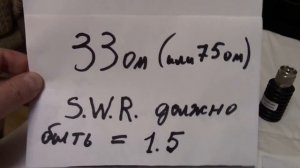 33 ом (или 75 ом)
S.W.R. должно
быть = 1.5